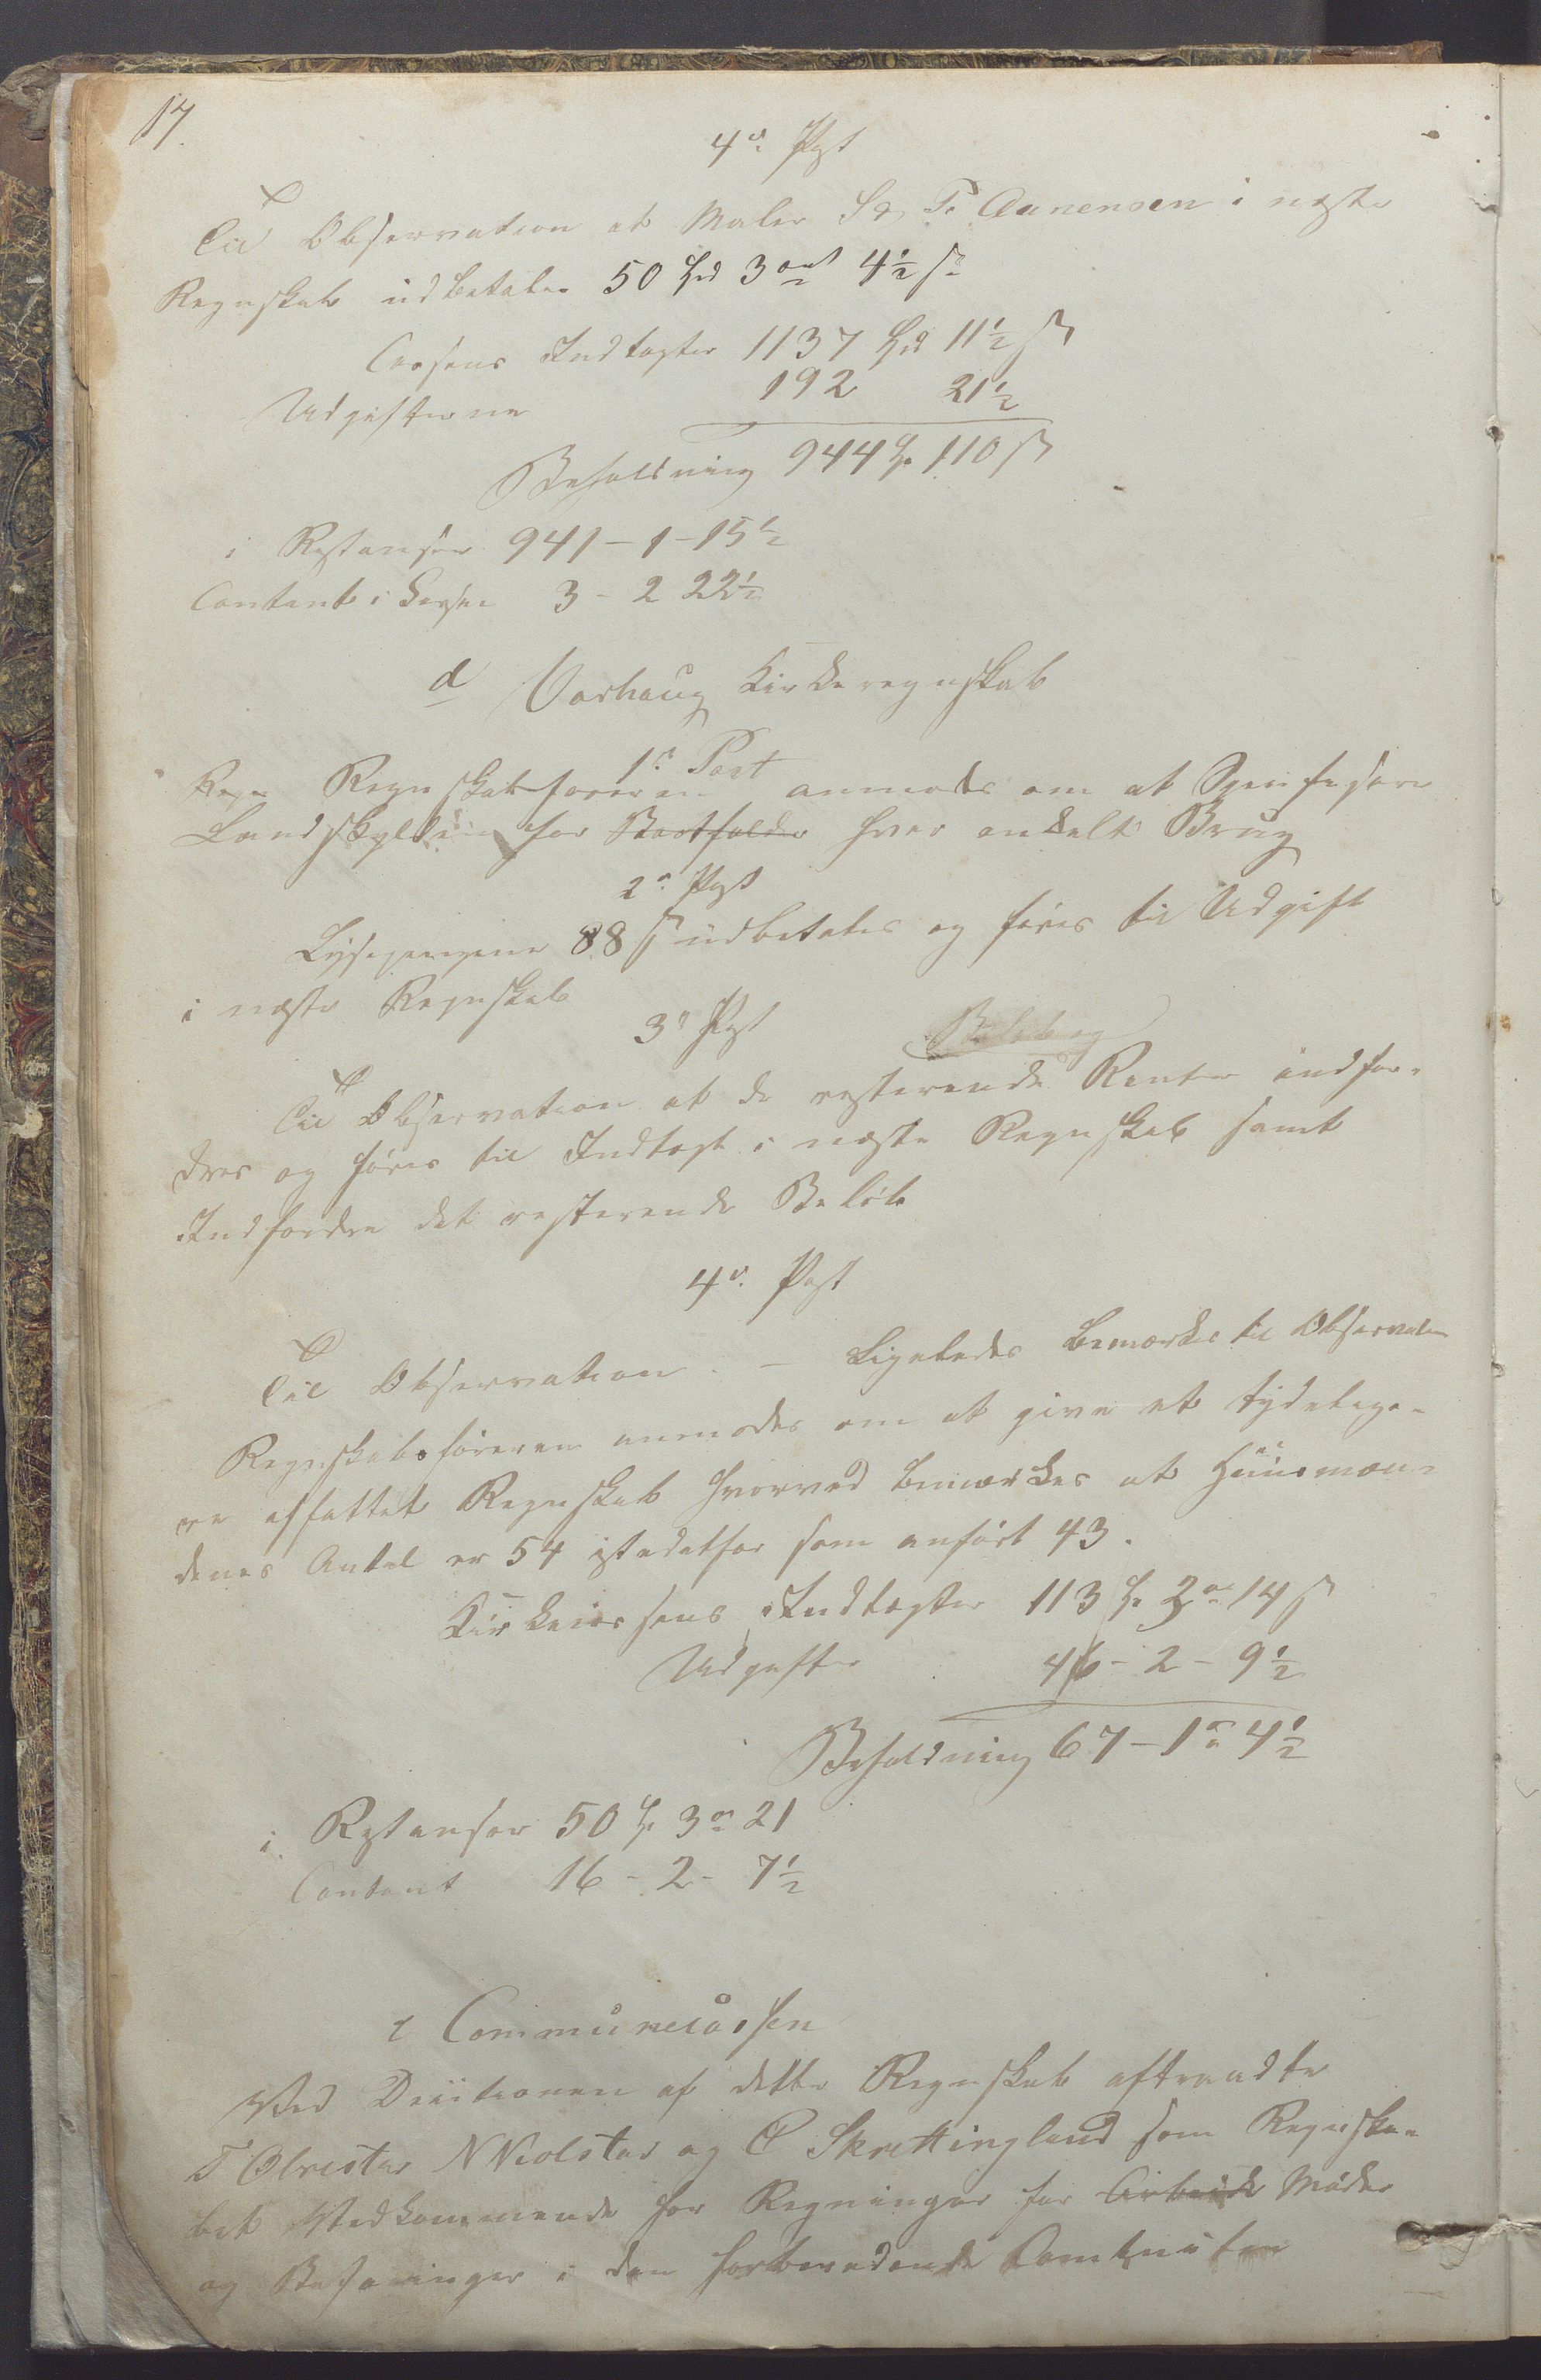 17.
4de Post
Til Observation at Maler S. T. Aanensen i næste
Regnskab udbetales 50 Spd 3 ort 4½ s
Cassens Indtægter 1137 Spd 11½ s
Udgifterne 192 21½
Beholdning 944 Sp. 110 s
i Restanser 941 - 1 - 15½
Contant i Cassen 3 - 2 22½
d Varhaug Kirkeregnskab
1ste Post
Regnskabsføreren anmodes om at Specificere
Landskylden for hver enkelt Brug
2den Post
Lysepengene 88 s udbetales og føres til Udgift
i næste Regnskab
3die Post
Til Observation at de resterende Renter indfor-
dres og føres til Indtægt i næste Regnskab samt
Indfordre det resterende Beløb
4de Post
Til Observation. - Ligeledes bemærkes til Observation
Regnskabsføreren anmodes om at give et tydelige-
re affattet Regnskab hvorved bemærkes at Huusmæn-
denes Antal er 54 istedetfor som anført 43.
Kirkecassens Indtægter 113 Sp 3 ort 14 s
Udgifter 46 - 2 - 9½
Beholdning 67 - 1 ort 4½
i Restanser 50 Sp 3 ort 21
Contant 16 - 2 - 7½
e Communecassen
Ved Desitionen af dette Regnskab aftraadte
T Olvestar N Njolstar og C Skrettingland som Regnska-
bet Vedkommende for Regninger for Arbeide Møder
og Befaringer i den forberedende